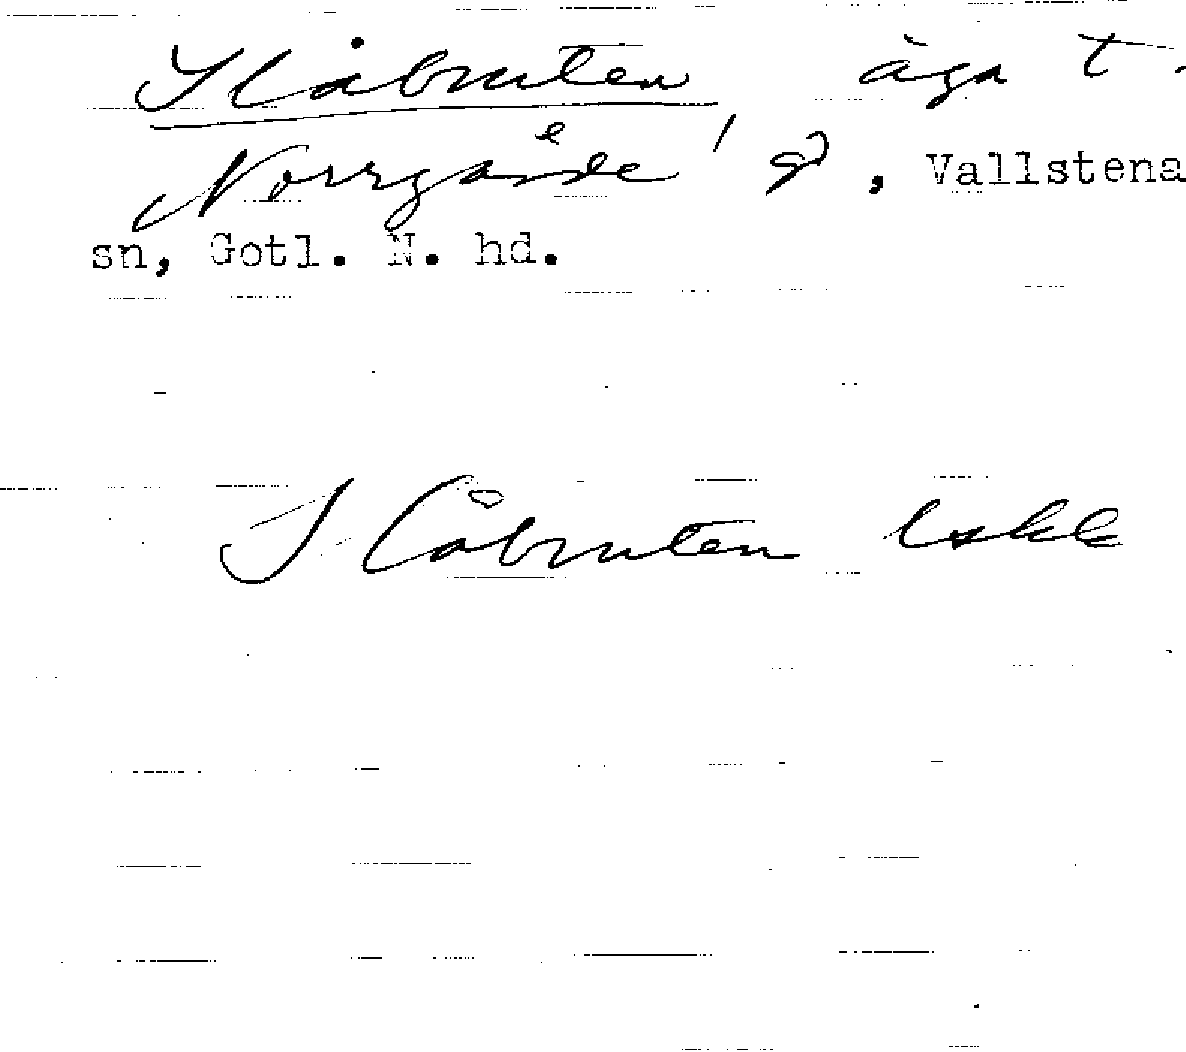 Slåbruten, äga t.
Norrgårde 1 g, Vallstena
sn, Gotl. N. hd.
I Låbruten